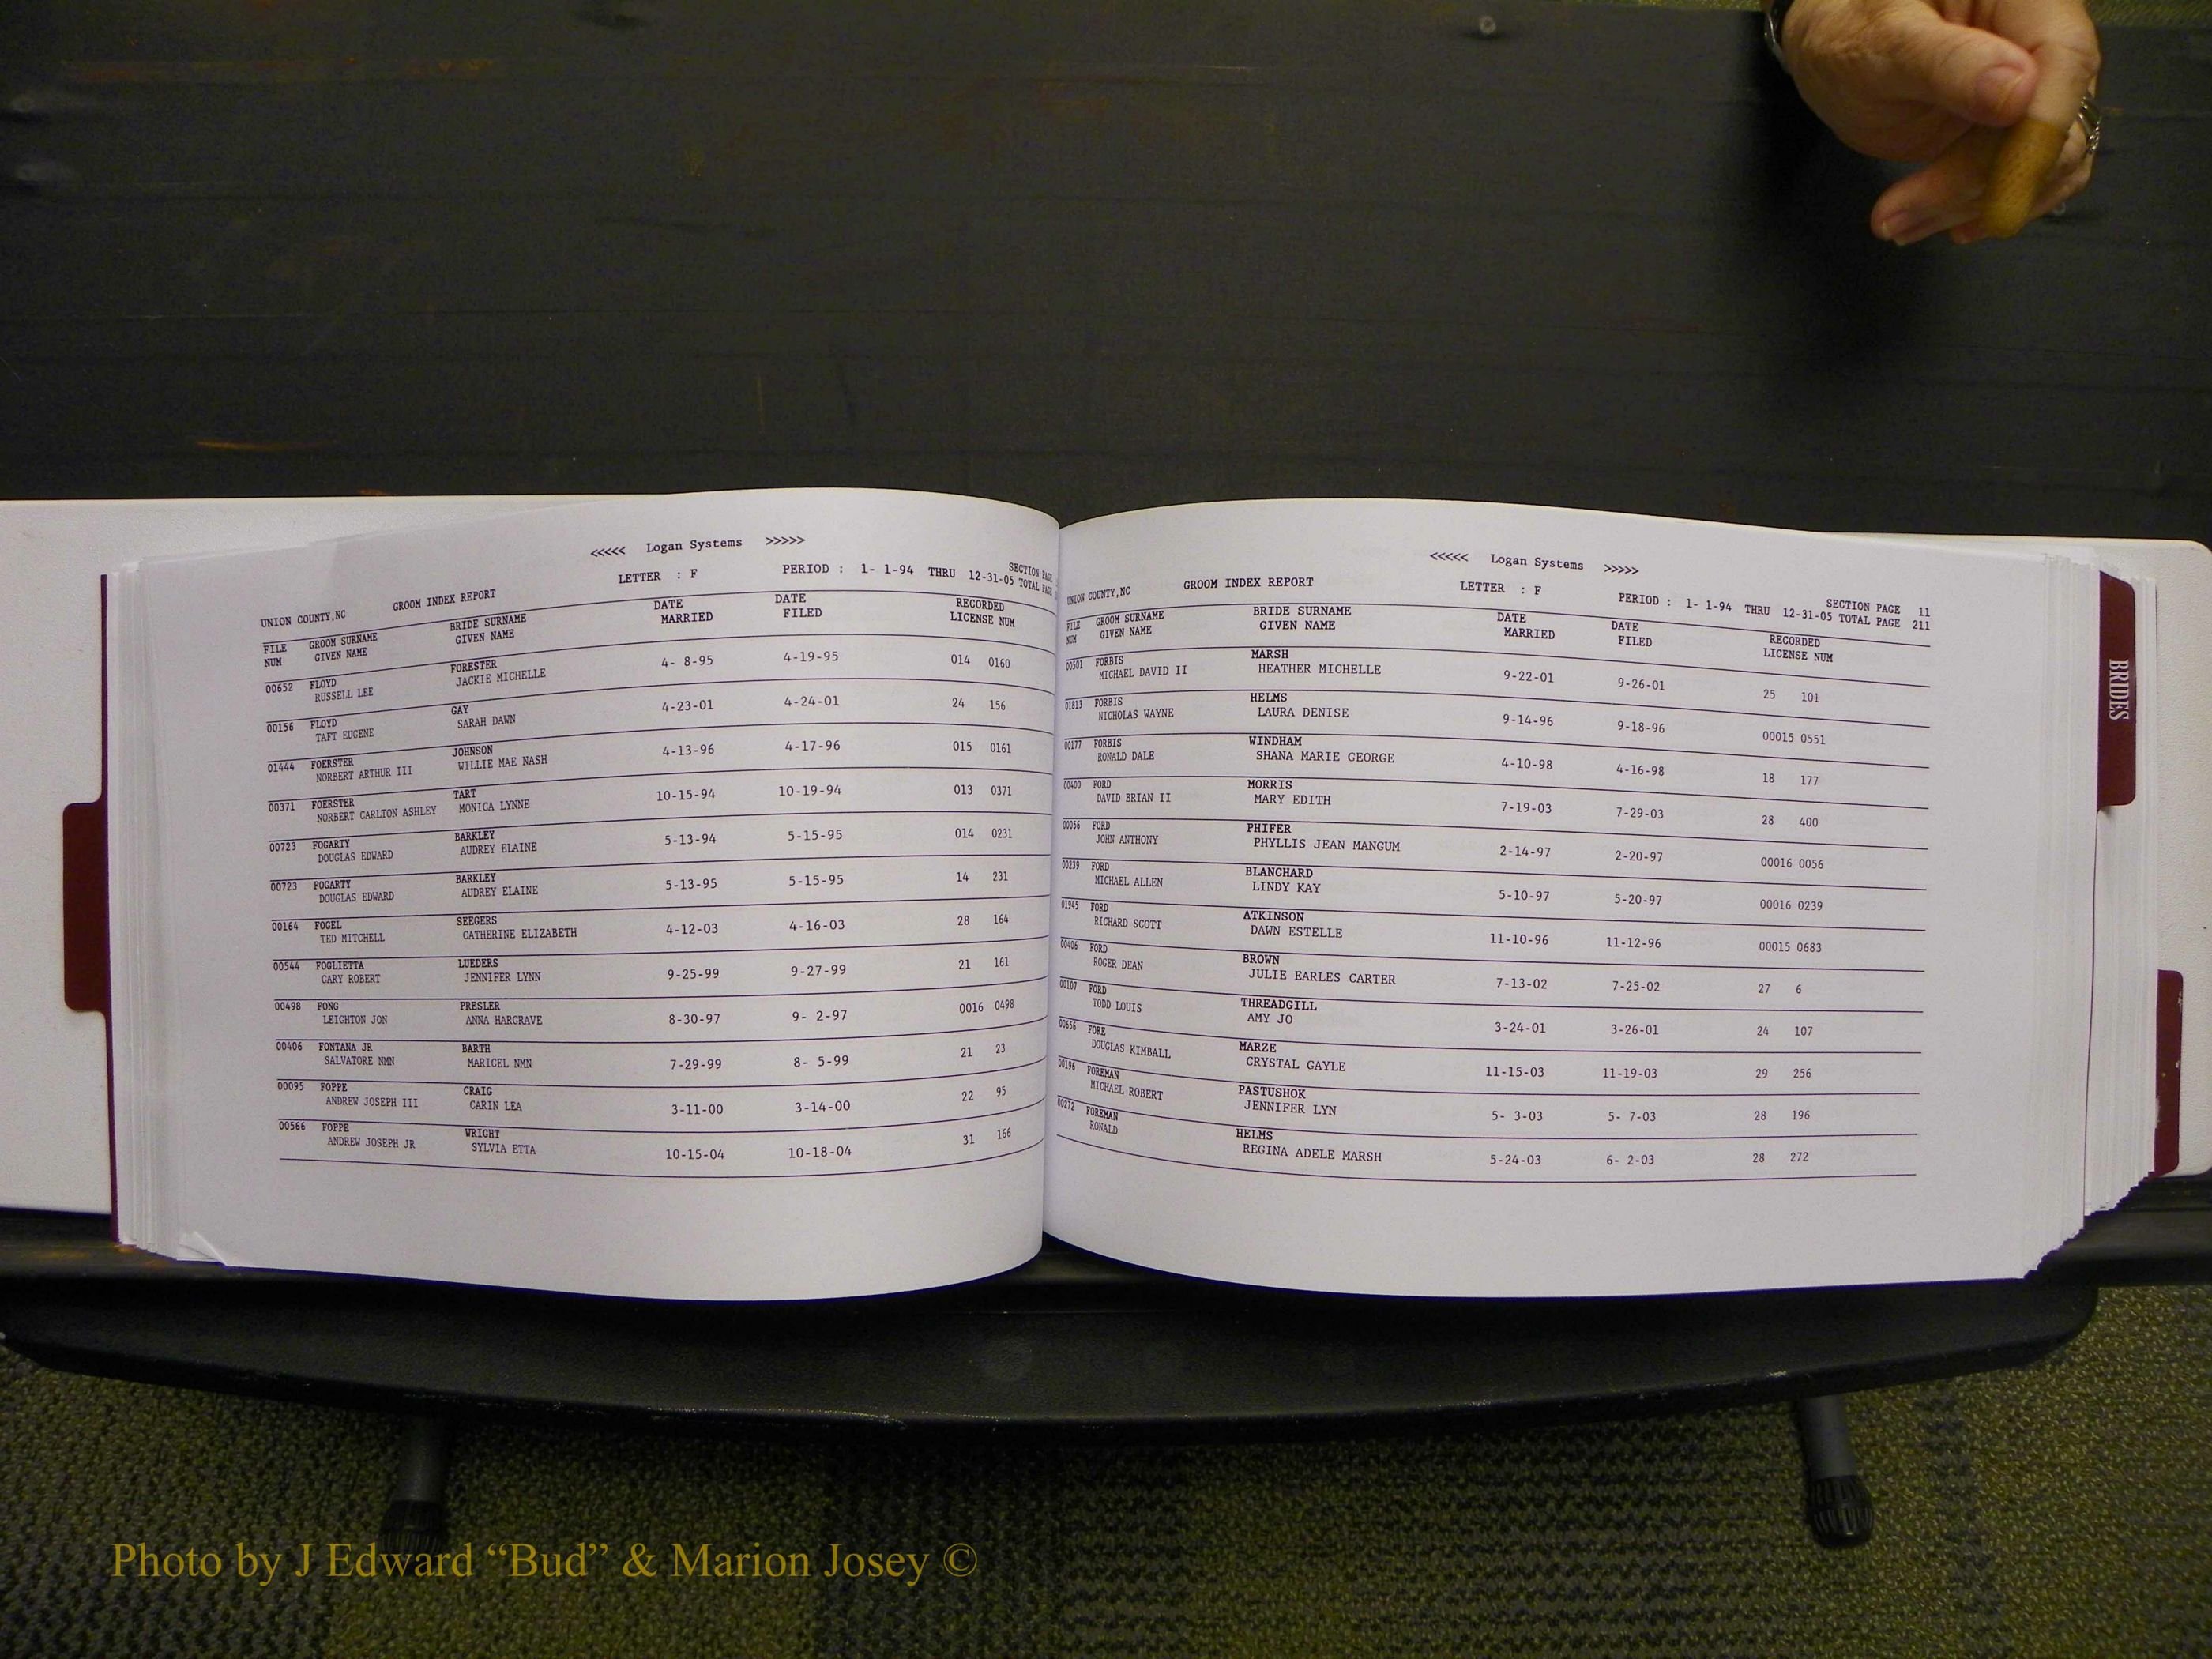 <<<<< Logan Systems >>>>>
UNION COUNTY,NC GROOM INDEX REPORT LETTER : F PERIOD : 1- 1-94 THRU 12-31-05 SECTION PAGE
TOTAL PAGE
FILE GROOM SURNAME BRIDE SURNAME DATE DATE RECORDED
NUM GIVEN NAME GIVEN NAME MARRIED FILED LICENSE NUM
00652 FLOYD FORESTER 4- 8-95 4-19-95 014 0160
RUSSELL LEE JACKIE MICHELLE
00156 FLOYD GAY 4-23-01 4-24-01 24 156
TAFT EUGENE SARAH DAWN
01444 FOERSTER JOHNSON 4-13-96 4-17-96 015 0161
NORBERT ARTHUR III WILLIE MAE NASH
00371 FOERSTER TART 10-15-94 10-19-94 013 0371
NORBERT CARLTON ASHLEY MONICA LYNNE
00723 FOGARTY BARKLEY 5-13-94 5-15-95 014 0231
DOUGLAS EDWARD AUDREY ELAINE
00723 FOGARTY BARKLEY 5-13-95 5-15-95 14 231
DOUGLAS EDWARD AUDREY ELAINE
00164 FOGEL SEEGERS 4-12-03 4-16-03 28 164
TED MITCHELL CATHERINE ELIZABETH
00544 FOGLIETTA LUEDERS 9-25-99 9-27-99 21 161
GARY ROBERT JENNIFER LYNN
00498 FONG PRESLER 8-30-97 9- 2-97 0016 0498
LEIGHTON JON ANNA HARGRAVE
00406 FONTANA JR BARTH 7-29-99 8- 5-99 21 23
SALVATORE NMN MARICEL NMN
00095 FOPPE CRAIG 3-11-00 3-14-00 22 95
ANDREW JOSEPH III CARIN LEA
00566 FOPPE WRIGHT 10-15-04 10-18-04 31 166
ANDREW JOSEPH JR SYLVIA ETTA
<<<<< Logan Systems >>>>>
UNION COUNTY,NC GROOM INDEX REPORT LETTER : F PERIOD : 1- 1-94 THRU 12-31-05 SECTION PAGE 11
TOTAL PAGE 211
FILE GROOM SURNAME BRIDE SURNAME DATE DATE RECORDED
NUM GIVEN NAME GIVEN NAME MARRIED FILED LICENSE NUM
00501 FORBIS MARSH 9-22-01 9-26-01 25 101
MICHAEL DAVID II HEATHER MICHELLE
01813 FORBIS HELMS 9-14-96 9-18-96 00015 0551
NICHOLAS WAYNE LAURA DENISE
00177 FORBIS WINDHAM 4-10-98 4-16-98 18 177
RONALD DALE SHANA MARIE GEORGE
00400 FORD MORRIS 7-19-03 7-29-03 28 400
DAVID BRIAN II MARY EDITH
00056 FORD PHIFER 2-14-97 2-20-97 00016 0056
JOHN ANTHONY PHYLLIS JEAN MANGUM
00239 FORD BLANCHARD 5-10-97 5-20-97 00016 0239
MICHAEL ALLEN LINDY KAY
01945 FORD ATKINSON 11-10-96 11-12-96 00015 0683
RICHARD SCOTT DAWN ESTELLE
00406 FORD BROWN 7-13-02 7-25-02 27 6
ROGER DEAN JULIE EARLES CARTER
00107 FORD THREADGILL 3-24-01 3-26-01 24 107
TODD LOUIS AMY JO
00656 FORE MARZE 11-15-03 11-19-03 29 256
DOUGLAS KIMBALL CRYSTAL GAYLE
00196 FOREMAN PASTUSHOK 5- 3-03 5- 7-03 28 196
MICHAEL ROBERT JENNIFER LYN
00272 FOREMAN HELMS 5-24-03 6- 2-03 28 272
RONALD REGINA ADELE MARSH
BRIDES
Photo by J Edward “Bud” & Marion Josey ©